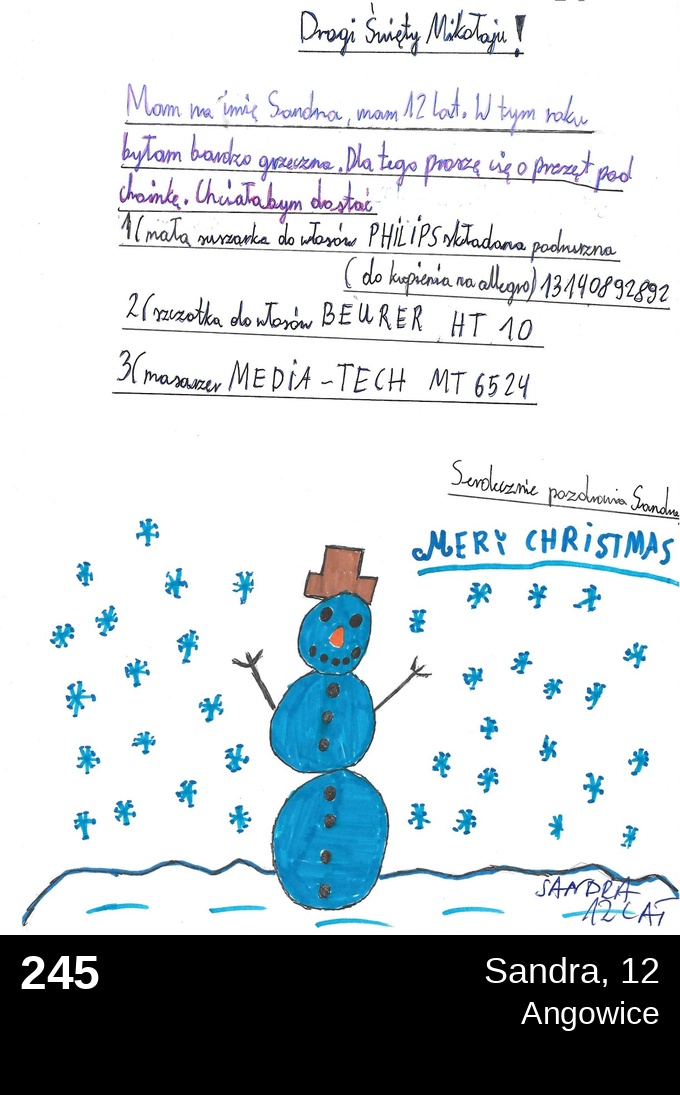 Drogi Święty Mikołaju!
Mam na imię Sandra, mam 12 lat. W tym roku
byłam bardzo grzeczna. Dla tego proszę cię o prezęt pod
choinkę. Chciałabym dostać
1( małą suszarka do włosów PHILIPS składana podruszna
( do kupienia na allegro) 13140892892
2( szczotka do włosów BEURER HT 10
3( masarzer MEDIA-TECH MT 6524
Serdecznie pozdrawia Sandra
MERY CHRISTMAS
SANDRA
12 LAT
245
Sandra, 12
Angowice